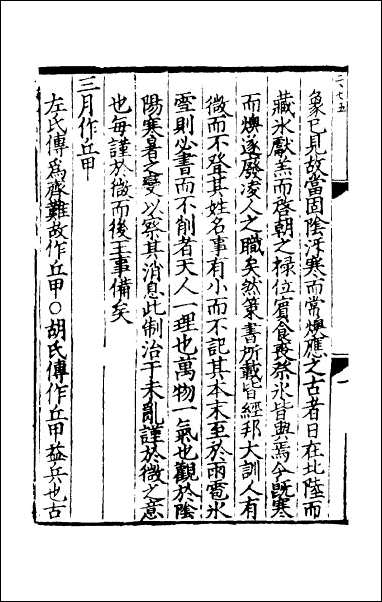 象已見故當固陰沍寒而常燠應之古者日在北陸而
藏氷獻羔而啓朝之祿位賓食喪祭氷皆與焉今旣寒
而燠遂廢凌人之職矣然策書所載皆經邦大訓人有
微而不登其姓名事有小而不記其本末至於雨雹氷
雪則必書而不削者天人一理也萬物一氣也觀於陰
陽寒暑之變以察其消息此制治于未亂謹於微之意
也每謹於微而後王事備矣
三月作丘甲
左氏傳爲齊難故作丘甲○胡氏傳作丘甲益兵也古